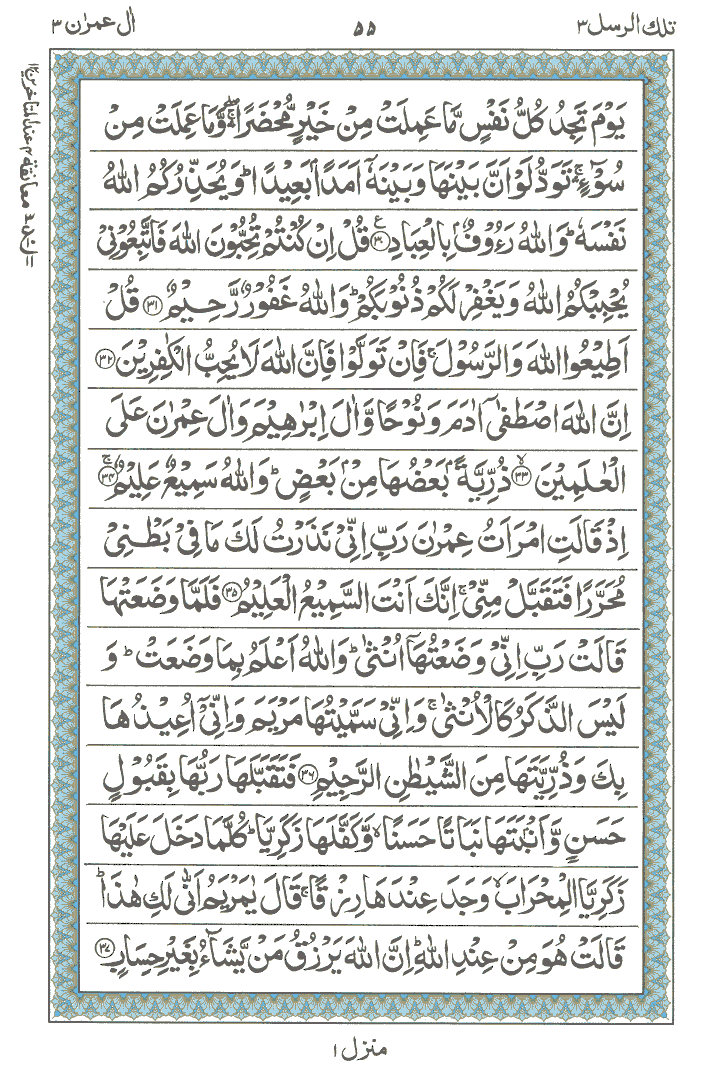 تلك الرسل ٣
٥٥
اٰل عمرٰن ٣
يَوْمَ تَجِدُ كُلُّ نَفْسٍ مَّا عَمِلَتْ مِنْ خَيْرٍ مُّحْضَرًا ۛۚ وَّمَا عَمِلَتْ مِنْ
سُوْٓءٍ ۛۚ تَوَدُّ لَوْ اَنَّ بَيْنَهَا وَبَيْنَهٗٓ اَمَدًاۢ بَعِيْدًا ؕ وَيُحَذِّرُكُمُ اللّٰهُ
نَفْسَهٗ ؕ وَاللّٰهُ رَءُوْفٌۢ بِالْعِبَادِ ﴿۳۰﴾ ع قُلْ اِنْ كُنْتُمْ تُحِبُّوْنَ اللّٰهَ فَاتَّبِعُوْنِيْ
يُحْبِبْكُمُ اللّٰهُ وَيَغْفِرْ لَكُمْ ذُنُوْبَكُمْ ؕ وَاللّٰهُ غَفُوْرٌ رَّحِيْمٌ ﴿۳۱﴾ قُلْ
اَطِيْعُوا اللّٰهَ وَالرَّسُوْلَ ۚ فَاِنْ تَوَلَّوْا فَاِنَّ اللّٰهَ لَا يُحِبُّ الْكٰفِرِيْنَ ﴿۳۲﴾
اِنَّ اللّٰهَ اصْطَفٰٓى اٰدَمَ وَنُوْحًا وَّاٰلَ اِبْرٰهِيْمَ وَاٰلَ عِمْرٰنَ عَلَى
الْعٰلَمِيْنَ ﴿۳۳﴾ ۙ ذُرِّيَّةًۢ بَعْضُهَا مِنْۢ بَعْضٍ ؕ وَاللّٰهُ سَمِيْعٌ عَلِيْمٌ ﴿۳۴﴾ ۚ
اِذْ قَالَتِ امْرَاَتُ عِمْرٰنَ رَبِّ اِنِّيْ نَذَرْتُ لَكَ مَا فِيْ بَطْنِيْ
مُحَرَّرًا فَتَقَبَّلْ مِنِّيْ ۚ اِنَّكَ اَنْتَ السَّمِيْعُ الْعَلِيْمُ ﴿۳۵﴾ فَلَمَّا وَضَعَتْهَا
قَالَتْ رَبِّ اِنِّيْ وَضَعْتُهَآ اُنْثٰى ؕ وَاللّٰهُ اَعْلَمُ بِمَا وَضَعَتْ ؕ وَ
لَيْسَ الذَّكَرُ كَالْاُنْثٰى ۚ وَاِنِّيْ سَمَّيْتُهَا مَرْيَمَ وَاِنِّيْٓ اُعِيْذُهَا
بِكَ وَذُرِّيَّتَهَا مِنَ الشَّيْطٰنِ الرَّجِيْمِ ﴿۳۶﴾ فَتَقَبَّلَهَا رَبُّهَا بِقَبُوْلٍ
حَسَنٍ وَّاَنْۢبَتَهَا نَبَاتًا حَسَنًا ۙ وَّكَفَّلَهَا زَكَرِيَّا ؕ كُلَّمَا دَخَلَ عَلَيْهَا
زَكَرِيَّا الْمِحْرَابَ ۙ وَجَدَ عِنْدَهَا رِزْقًا ۚ قَالَ يٰمَرْيَمُ اَنّٰى لَكِ هٰذَا ؕ
قَالَتْ هُوَ مِنْ عِنْدِ اللّٰهِ ؕ اِنَّ اللّٰهَ يَرْزُقُ مَنْ يَّشَآءُ بِغَيْرِ حِسَابٍ ﴿۳۷﴾
منزل ١